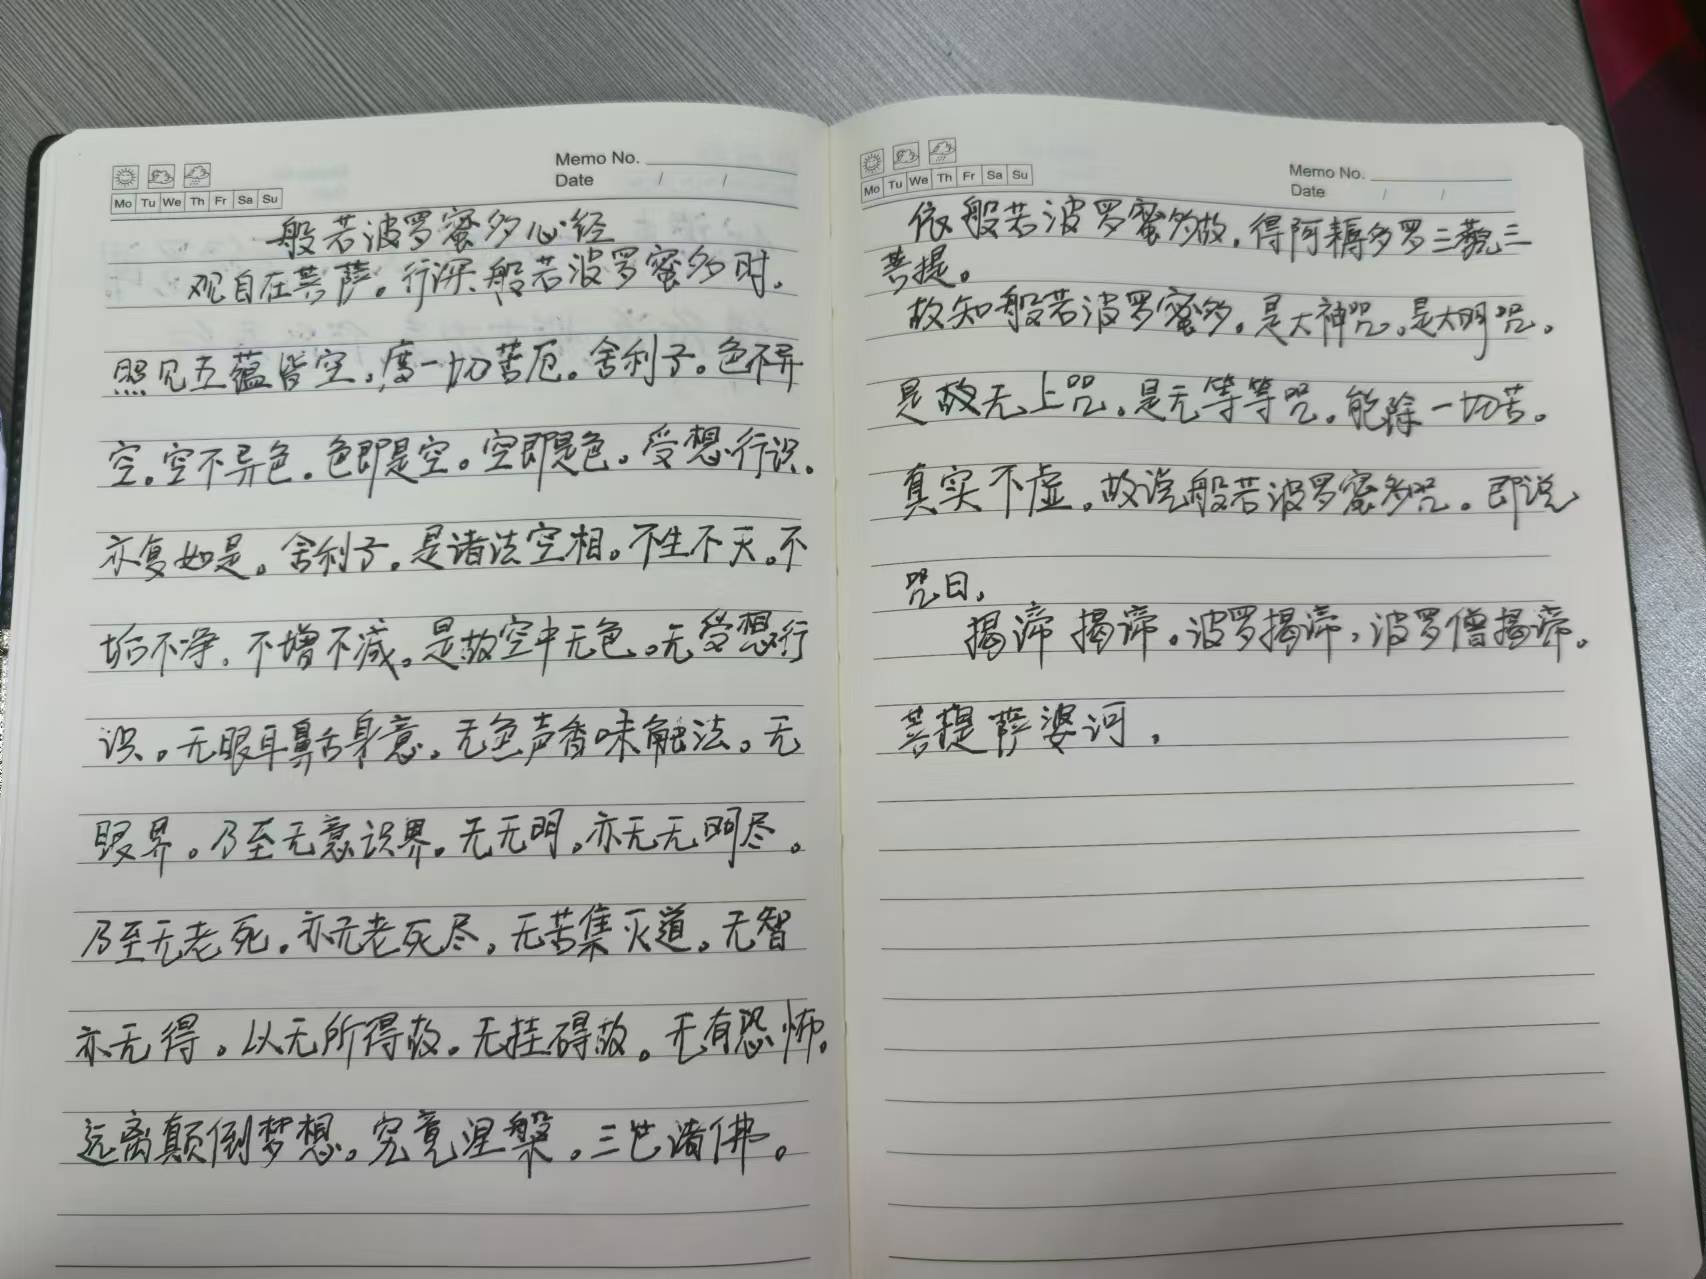 Memo No.
Date / /
Mo Tu We Th Fr Sa Su
般若波罗蜜多心经
观自在菩萨。行深般若波罗蜜多时。
照见五蕴皆空。度一切苦厄。舍利子。色不异
空。空不异色。色即是空。空即是色。受想行识。
亦复如是。舍利子。是诸法空相。不生不灭。不
垢不净,不增不减。是故空中无色。无受想行
识。无眼耳鼻舌身意。无色声香味触法。无
眼界。乃至无意识界。无无明。亦无无明尽。
乃至无老死。亦无老死尽。无苦集灭道。无智
亦无得。以无所得故。无挂碍故。无有恐怖。
远离颠倒梦想。究竟涅槃。三世诸佛。
Memo No.
Date / /
Mo Tu We Th Fr Sa Su
依般若波罗蜜多故。得阿耨多罗三藐三
菩提。
故知般若波罗蜜多。是大神咒。是大明咒。
是故无上咒。是无等等咒。能除一切苦。
真实不虚。故说般若波罗蜜多咒。即说
咒曰,
揭谛 揭谛。波罗揭谛,波罗僧揭谛。
菩提萨婆诃,